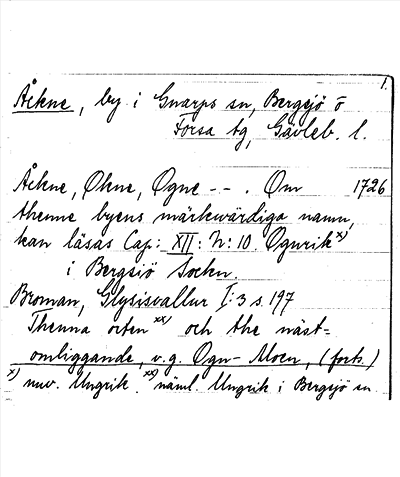 1.
Åckne, by i Gnarps sn, Bergsjö o
Forsa tg, Gävleb. l.
Åckne, Økne, Øgne - - . Om 1726
thenne byens märkwärdiga namn,
kan läsas Cap: XII: N: 10. Øgnrik x)
i Bergsiö Sockn.
Broman, Glysisvallur I: 3 s. 197
Thenna orten xx) och the näst-
omliggande, v.g. Øgn- Moen, (forts.)
x) nuv. Ungrik. xx) näml. Ungrik i Bergsjö sn